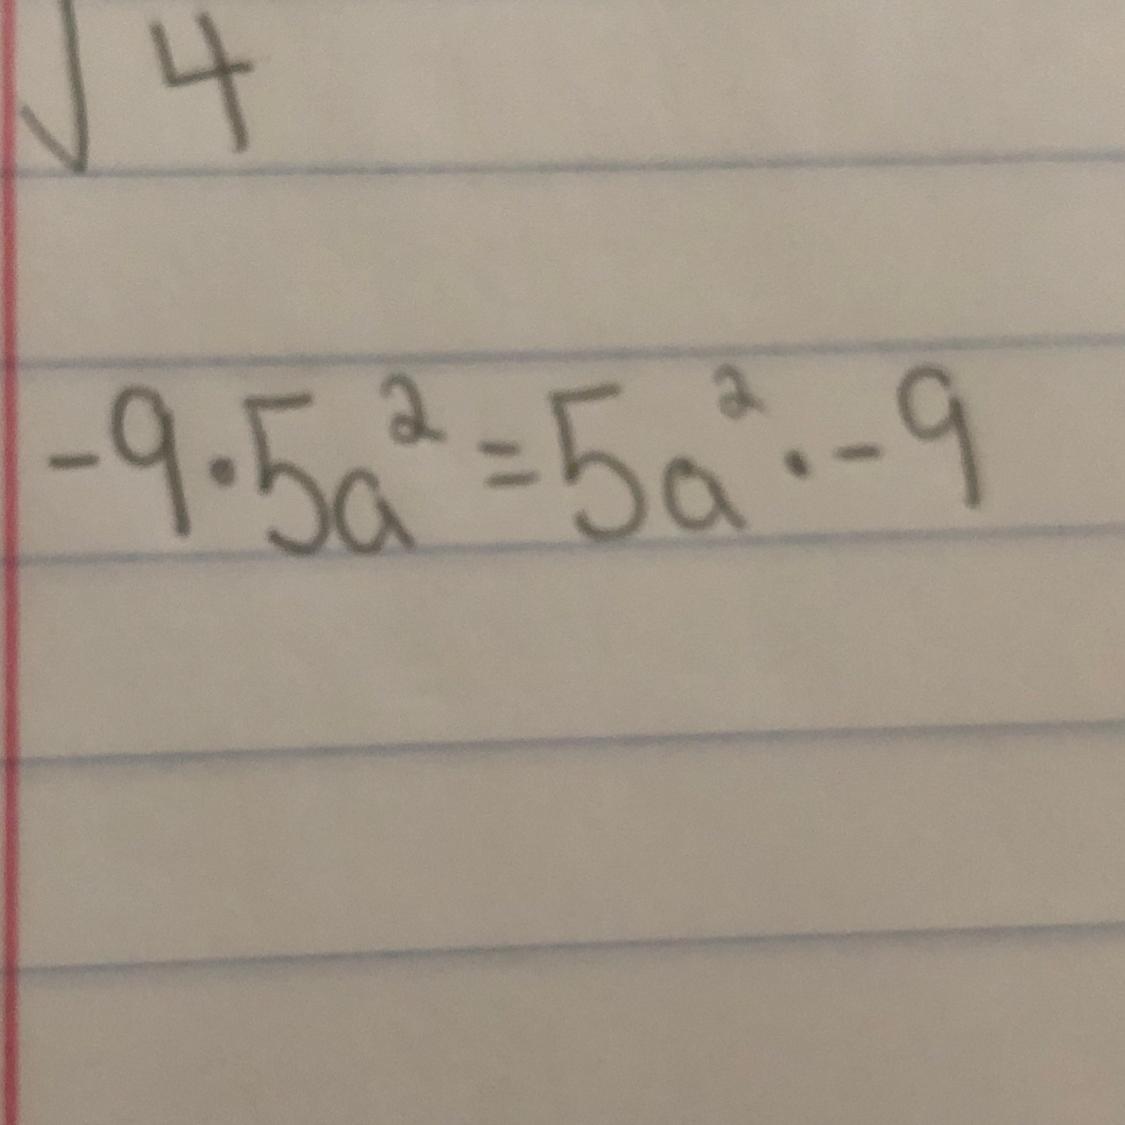 √4
-9·5a²=5a²·-9